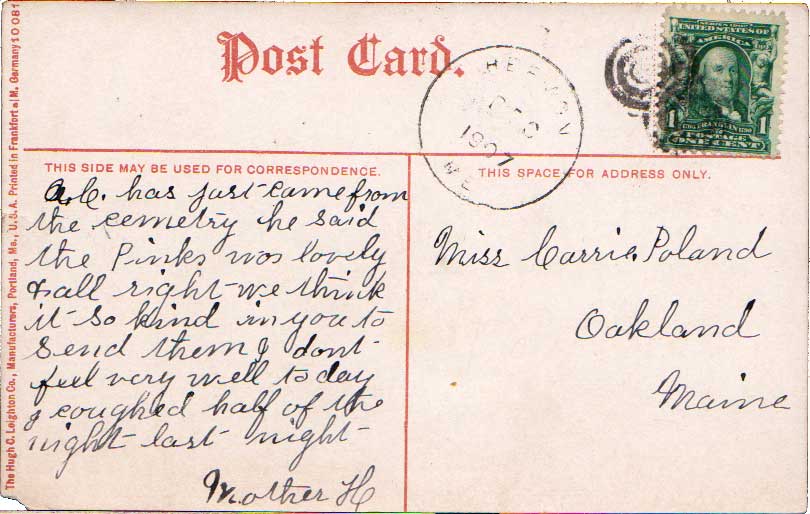 The Hugh C. Leighton Co., Manufacturers, Portland, Me., U. S. A. Printed in Frankfort a/M. Germany 10 081
Post Card.
1907
ME
SERIES 1902
UNITED STATES OF
AMERICA
1 1
FRANKLIN
POSTAGE
ONE CENT
THIS SIDE MAY BE USED FOR CORRESPONDENCE.
THIS SPACE FOR ADDRESS ONLY.
A. C. has just came from
the cemetry he said
the Pinks was lovely
& all right we think
it so kind in you to
send them I dont
feel very well to day
I coughed half of the
night last night
Mother H
Miss Carrie Poland
Oakland
Maine